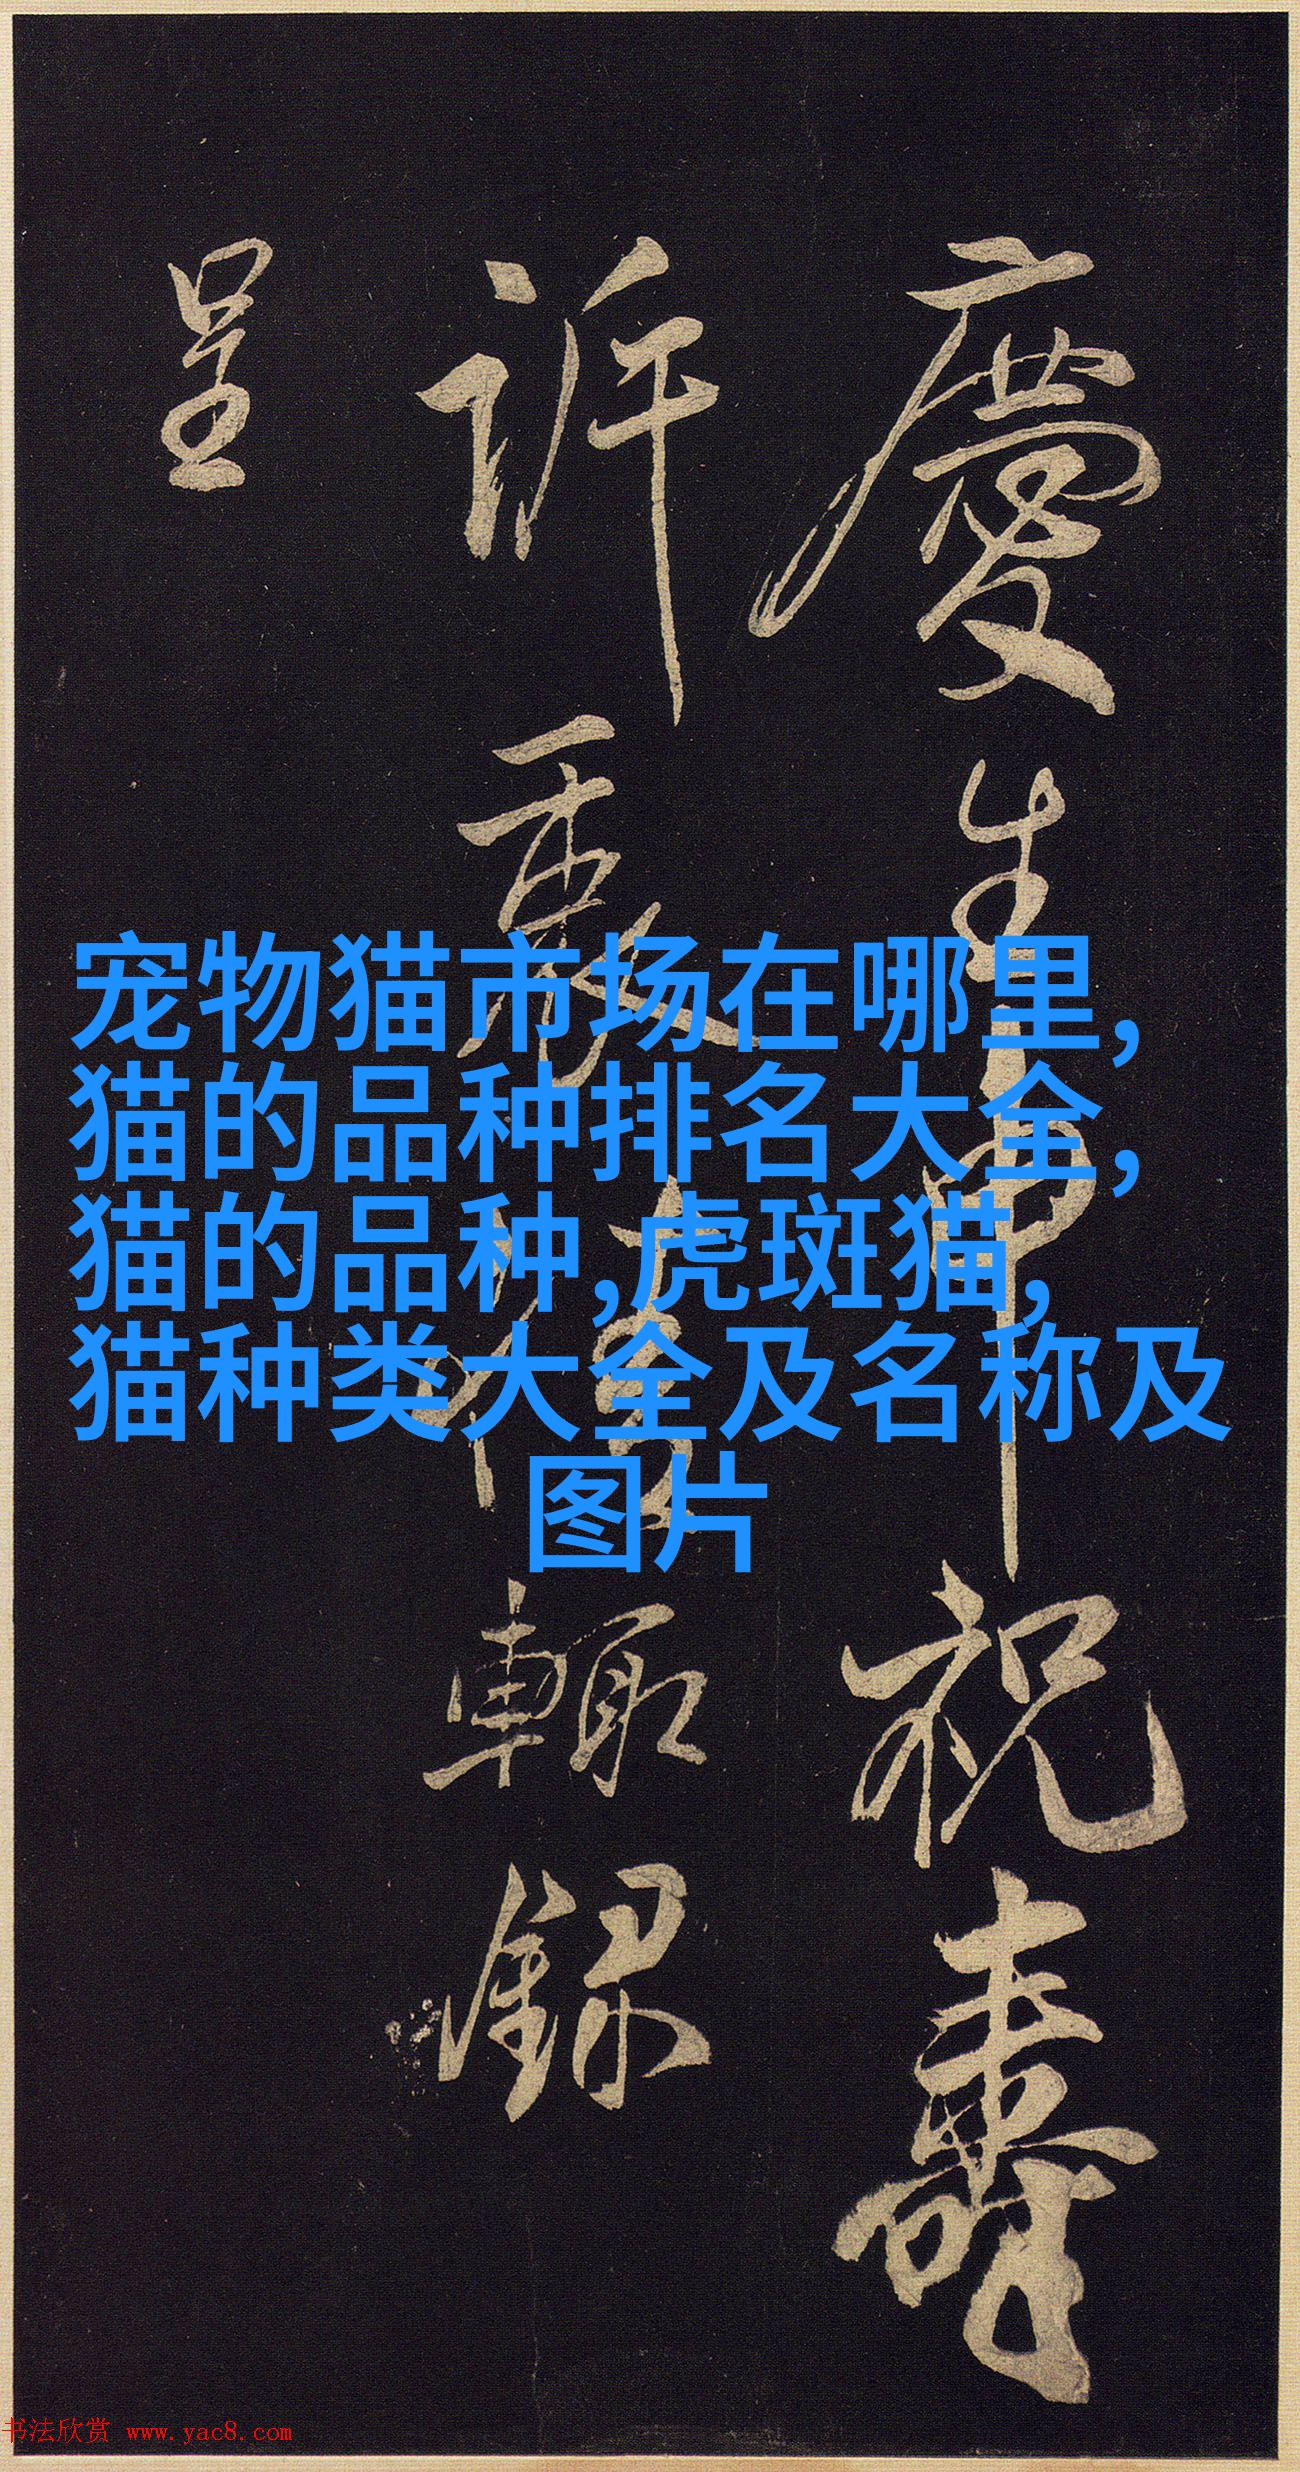 慶生申祝壽
訢
輙録
呈
宠物猫市场在哪里,
猫的品种排名大全,
猫的品种,虎斑猫,
猫种类大全及名称及
图片
书法欣赏 www.yac8.com